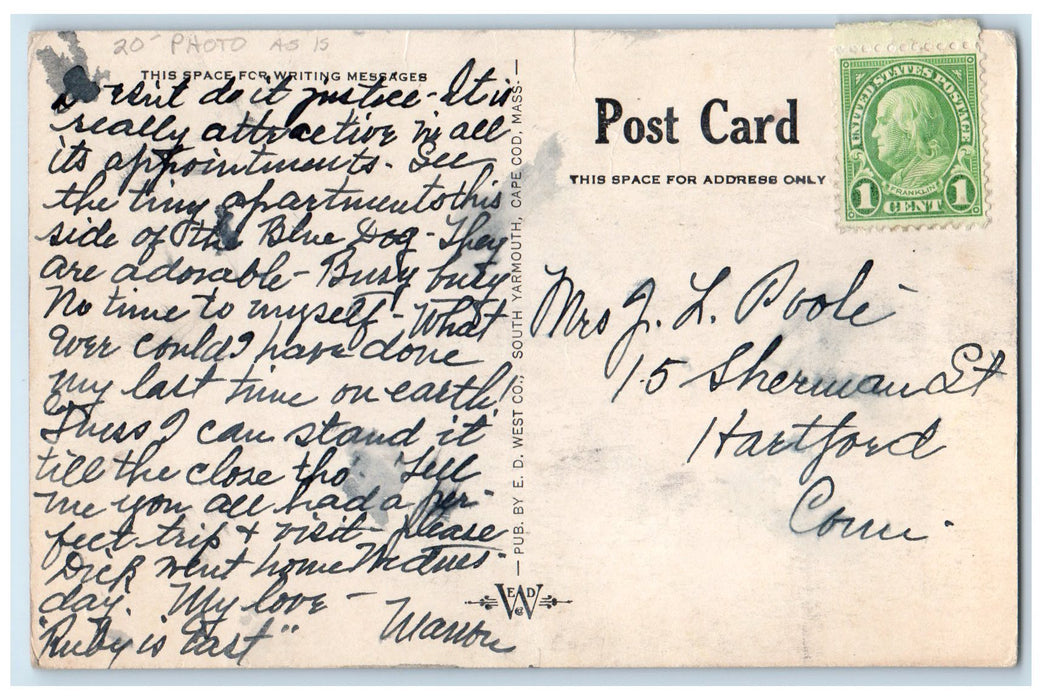 20- PHOTO AS IS
THIS SPACE FOR WRITING MESSAGES
Doesn't do it justice - It is
really attractive in all
its appointments. See
the tiny apartments this
side of the Blue Dog - They
are adorable - Busy busy
No time to myself - What
ever could I have done
my last time on earth!
Guess I can stand it
till the close tho. Tell
me you all had a per-
fect trip & visit - please
Dick went home Wednes-
day. My love -
Marion
"Ruby is East"
PUB. BY E. D. WEST CO., SOUTH YARMOUTH, CAPE COD, MASS.
EAD
W
Co
Post Card
THIS SPACE FOR ADDRESS ONLY
UNITED STATES POSTAGE
FRANKLIN
1 CENT 1
Mrs J. L. Poole
15 Sherman St
Hartford
Conn.